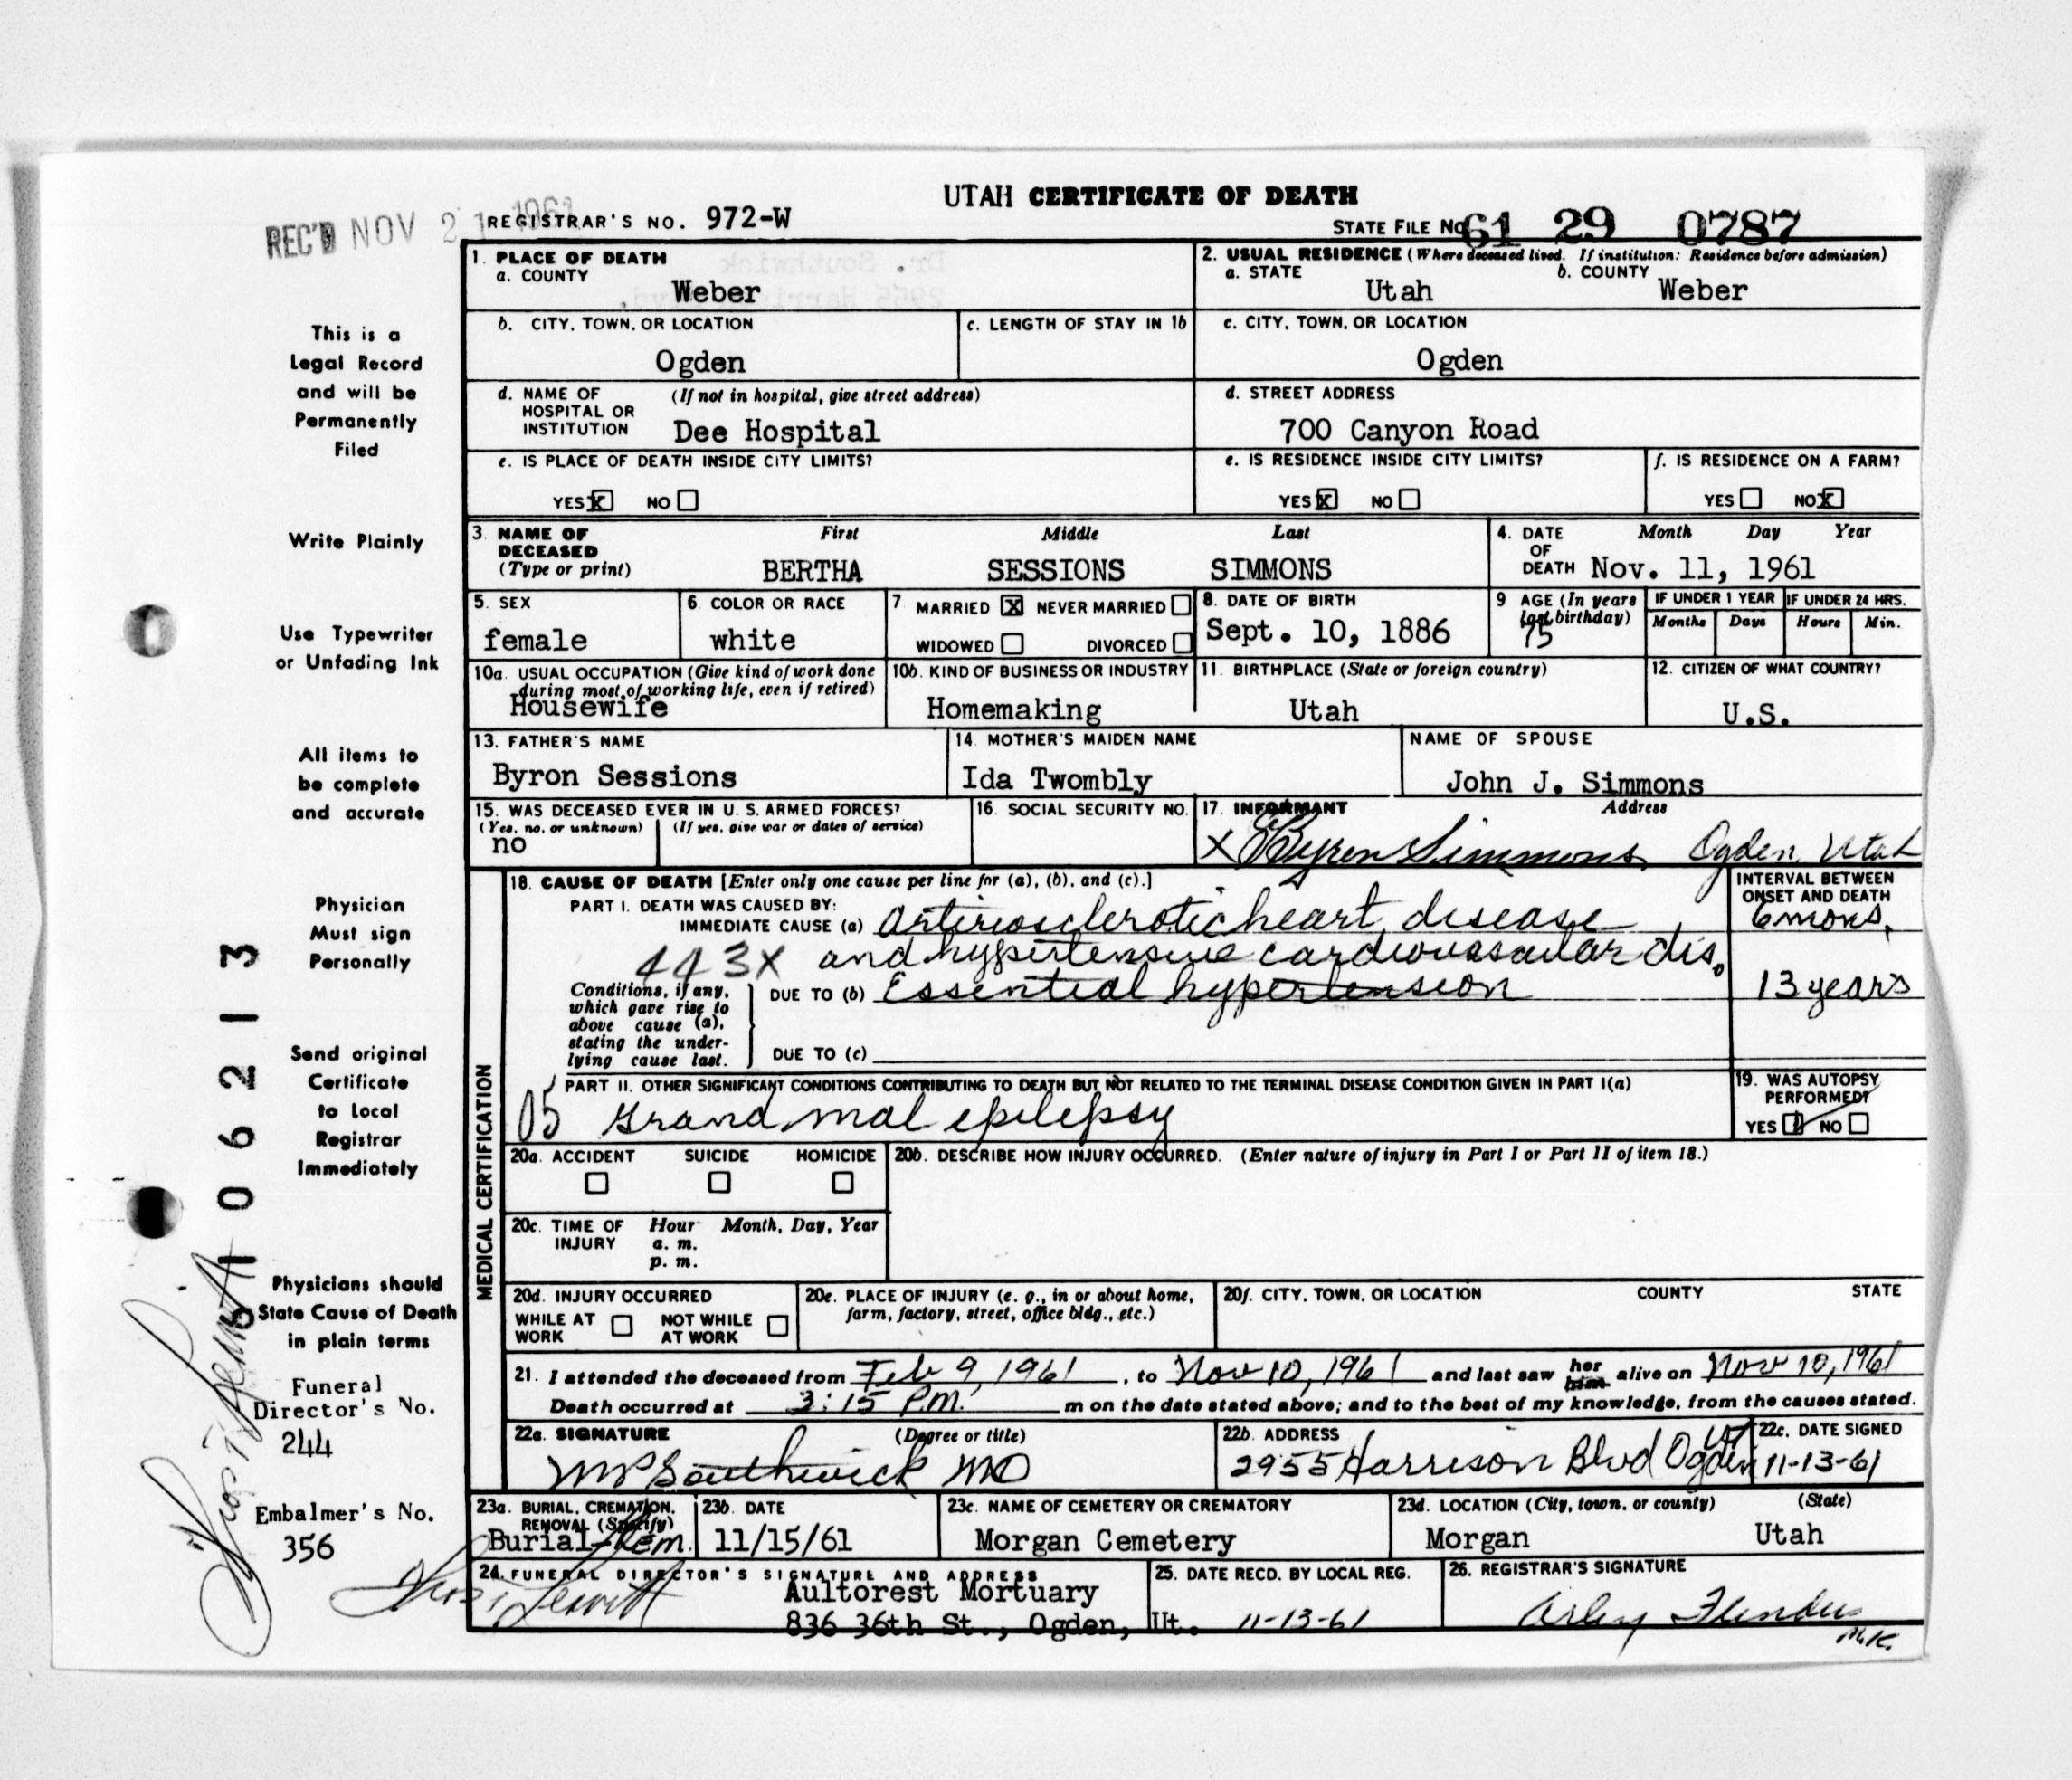 UTAH CERTIFICATE OF DEATH
REC'D NOV 21 1961
REGISTRAR'S NO. 972-W
STATE FILE NO. 61 29 0787
1. PLACE OF DEATH
a. COUNTY
Weber
2. USUAL RESIDENCE (Where deceased lived. If institution: Residence before admission)
a. STATE b. COUNTY
Utah Weber
b. CITY, TOWN, OR LOCATION
Ogden
c. LENGTH OF STAY IN 1b
c. CITY, TOWN, OR LOCATION
Ogden
d. NAME OF (If not in hospital, give street address)
HOSPITAL OR
INSTITUTION Dee Hospital
d. STREET ADDRESS
700 Canyon Road
e. IS PLACE OF DEATH INSIDE CITY LIMITS?
YES X NO
e. IS RESIDENCE INSIDE CITY LIMITS?
YES X NO
f. IS RESIDENCE ON A FARM?
YES NO X
3. NAME OF First Middle Last
DECEASED
(Type or print) BERTHA SESSIONS SIMMONS
4. DATE Month Day Year
OF
DEATH Nov. 11, 1961
5. SEX
female
6. COLOR OR RACE
white
7 MARRIED X NEVER MARRIED
WIDOWED DIVORCED
8. DATE OF BIRTH
Sept. 10, 1886
9 AGE (In years
last birthday)
75
IF UNDER 1 YEAR IF UNDER 24 HRS.
Months Days Hours Min.
10a. USUAL OCCUPATION (Give kind of work done
during most of working life, even if retired)
Housewife
10b. KIND OF BUSINESS OR INDUSTRY
Homemaking
11. BIRTHPLACE (State or foreign country)
Utah
12. CITIZEN OF WHAT COUNTRY?
U.S.
13. FATHER'S NAME
Byron Sessions
14. MOTHER'S MAIDEN NAME
Ida Twombly
NAME OF SPOUSE
John J. Simmons
15. WAS DECEASED EVER IN U. S. ARMED FORCES?
(Yes, no, or unknown) (If yes, give war or dates of service)
no
16. SOCIAL SECURITY NO.
17. INFORMANT Address
X Byron Simmons, Ogden, Utah
MEDICAL CERTIFICATION
18. CAUSE OF DEATH [Enter only one cause per line for (a), (b), and (c).]
INTERVAL BETWEEN
ONSET AND DEATH
PART I. DEATH WAS CAUSED BY:
IMMEDIATE CAUSE (a) arteriosclerotic heart disease 6 mons.
443X and hypertensive cardiovascular dis.
Conditions, if any,
which gave rise to
above cause (a),
stating the under-
lying cause last.
DUE TO (b) Essential hypertension 13 years
DUE TO (c)
PART II. OTHER SIGNIFICANT CONDITIONS CONTRIBUTING TO DEATH BUT NOT RELATED TO THE TERMINAL DISEASE CONDITION GIVEN IN PART I(a)
05 Grand mal epilepsy
19. WAS AUTOPSY
PERFORMED?
YES NO
20a. ACCIDENT SUICIDE HOMICIDE
20b. DESCRIBE HOW INJURY OCCURRED. (Enter nature of injury in Part I or Part II of item 18.)
20c. TIME OF Hour Month, Day, Year
INJURY a. m.
p. m.
20d. INJURY OCCURRED
WHILE AT NOT WHILE
WORK AT WORK
20e. PLACE OF INJURY (e. g., in or about home,
farm, factory, street, office bldg., etc.)
20f. CITY, TOWN, OR LOCATION COUNTY STATE
21. I attended the deceased from Feb 9, 1961, to Nov 10, 1961 and last saw her him alive on Nov 10, 1961
Death occurred at 3:15 P.M. m on the date stated above; and to the best of my knowledge, from the causes stated.
22a. SIGNATURE (Degree or title)
MP Southwick MD
22b. ADDRESS
2955 Harrison Blvd Ogden Ut
22c. DATE SIGNED
11-13-61
23a. BURIAL, CREMATION,
REMOVAL (Specify)
Burial-Rem.
23b. DATE
11/15/61
23c. NAME OF CEMETERY OR CREMATORY
Morgan Cemetery
23d. LOCATION (City, town, or county) (State)
Morgan Utah
24. FUNERAL DIRECTOR'S SIGNATURE AND ADDRESS
Aultorest Mortuary
836 36th St., Ogden, Ut.
25. DATE RECD. BY LOCAL REG.
11-13-61
26. REGISTRAR'S SIGNATURE
This is a
Legal Record
and will be
Permanently
Filed
Write Plainly
Use Typewriter
or Unfading Ink
All items to
be complete
and accurate
Physician
Must sign
Personally
Send original
Certificate
to Local
Registrar
Immediately
Physicians should
State Cause of Death
in plain terms
Funeral
Director's No.
244
Embalmer's No.
356